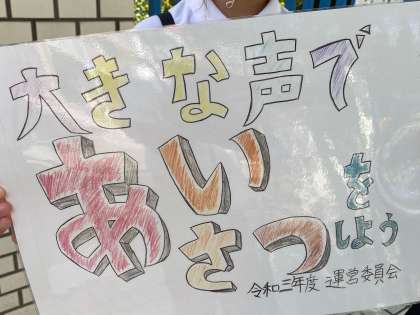 大きな声で
あいさつ
をしよう
令和三年度 運営委員会